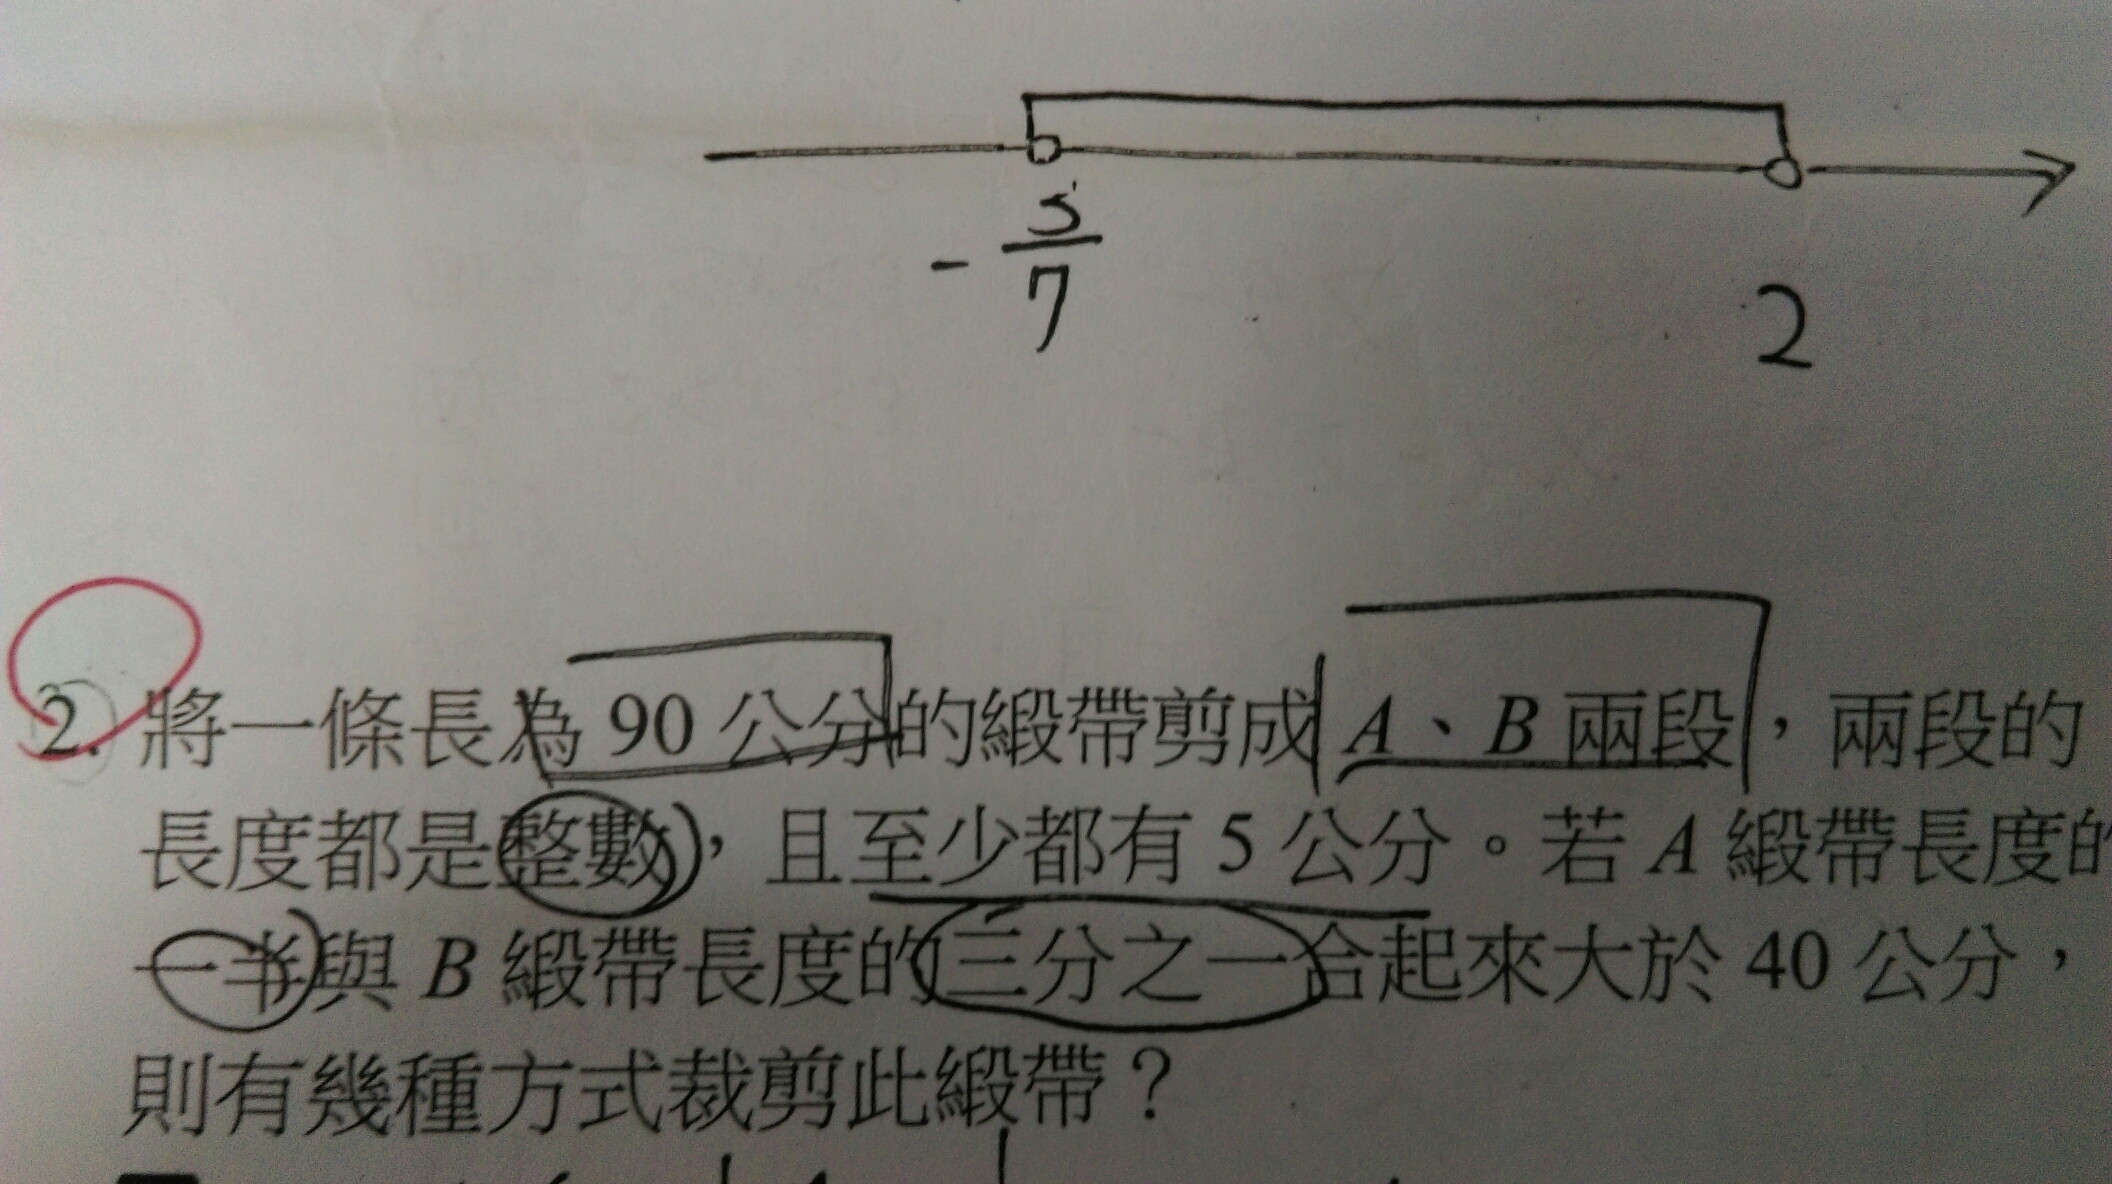 - 5/7
2
2. 將一條長為 90 公分的緞帶剪成 A、B 兩段，兩段的
長度都是整數，且至少都有 5 公分。若 A 緞帶長度的
一半與 B 緞帶長度的三分之一合起來大於 40 公分，
則有幾種方式裁剪此緞帶？